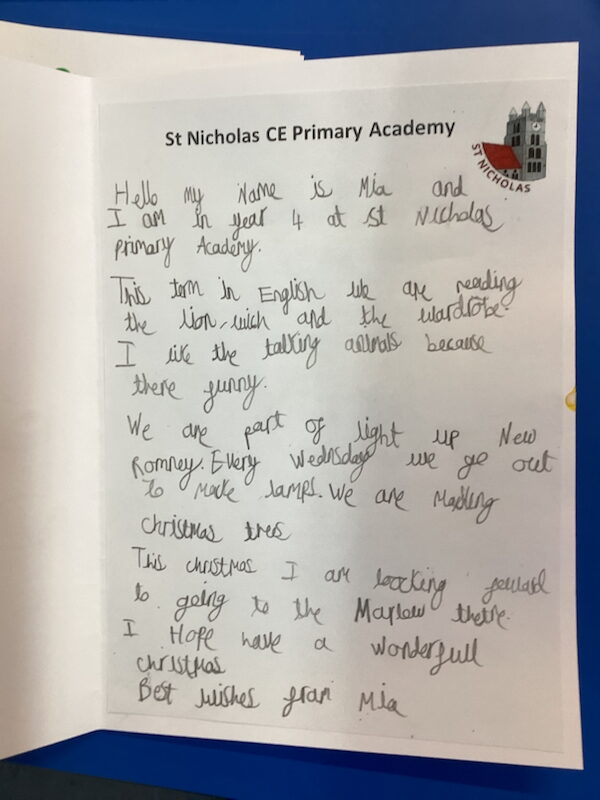 St Nicholas CE Primary Academy
ST NICHOLAS
Hello my Name is Mia and
I am in year 4 at st Nicholas
primary Academy.
This term in English we are reading
the lion-wich and the wardrobe.
I like the talking animals because
there funny.
We are part of light up New
Romney. Every Wednsday we go out
to make lamps. We are Macking
christmas tres
This christmas I am loocking forward
to going to the Marlow thetre.
I Hope have a wonderfull
christmas
Best wishes from Mia